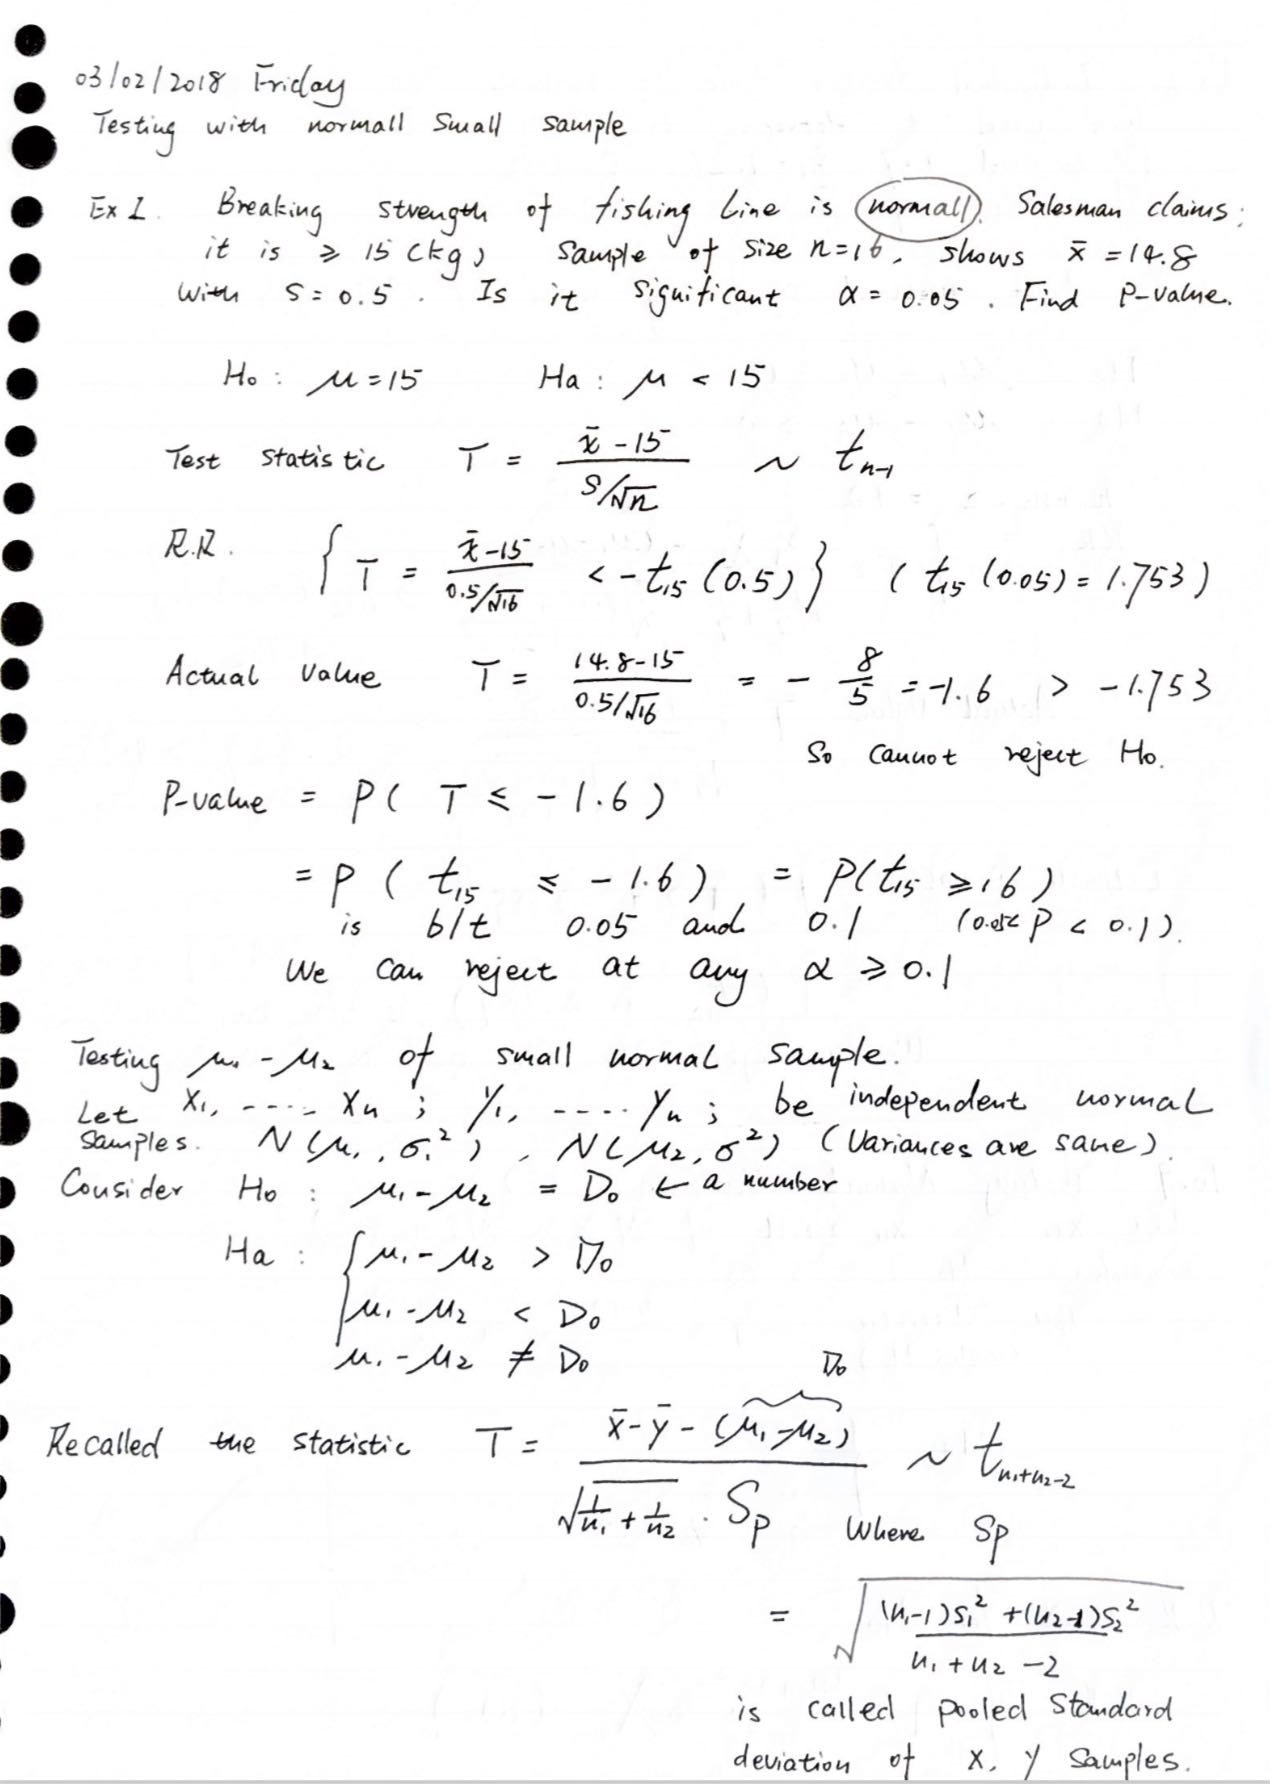 03/02/2018 Friday
Testing with normall small sample
Ex 1. Breaking strength of fishing line is normall. Salesman claims:
it is ≥ 15 (kg) sample of size n=16, shows x̄ = 14.8
with S = 0.5. Is it significant α = 0.05. Find P-value.
Ho: μ = 15 Ha: μ < 15
Test statistic T = (x̄ - 15)/(S/√n) ~ t_{n-1}
R.R. { T = (x̄-15)/(0.5/√16) < -t_{15} (0.5) } ( t_{15} (0.05) = 1.753 )
Actual value T = (14.8-15)/(0.5/√16) = - 8/5 = -1.6 > -1.753
So cannot reject Ho.
P-value = P( T ≤ -1.6 )
= P ( t_{15} ≤ -1.6 ) = P(t_{15} ≥ 1.6 )
is b/t 0.05 and 0.1 (0.05< P < 0.1).
We can reject at any α ≥ 0.1
Testing μ₁ - μ₂ of small normal sample.
Let X₁, ..... Xn ; Y₁, ..... Yn ; be independent normal
samples. N(μ₁, σ₁²), N(μ₂, σ²) (Variances are same).
Consider Ho: μ₁ - μ₂ = D₀ ← a number
Ha: { μ₁ - μ₂ > D₀
μ₁ - μ₂ < D₀
μ₁ - μ₂ ≠ D₀
D₀
Recalled the statistic T = (x̄ - ȳ - (μ₁-μ₂))/(√(1/n₁ + 1/n₂) · Sp) ~ t_{n₁+n₂-2}
Where Sp
= √(((n₁-1)S₁² + (n₂-1)S₂²)/(n₁ + n₂ - 2))
is called pooled standard
deviation of X, Y samples.